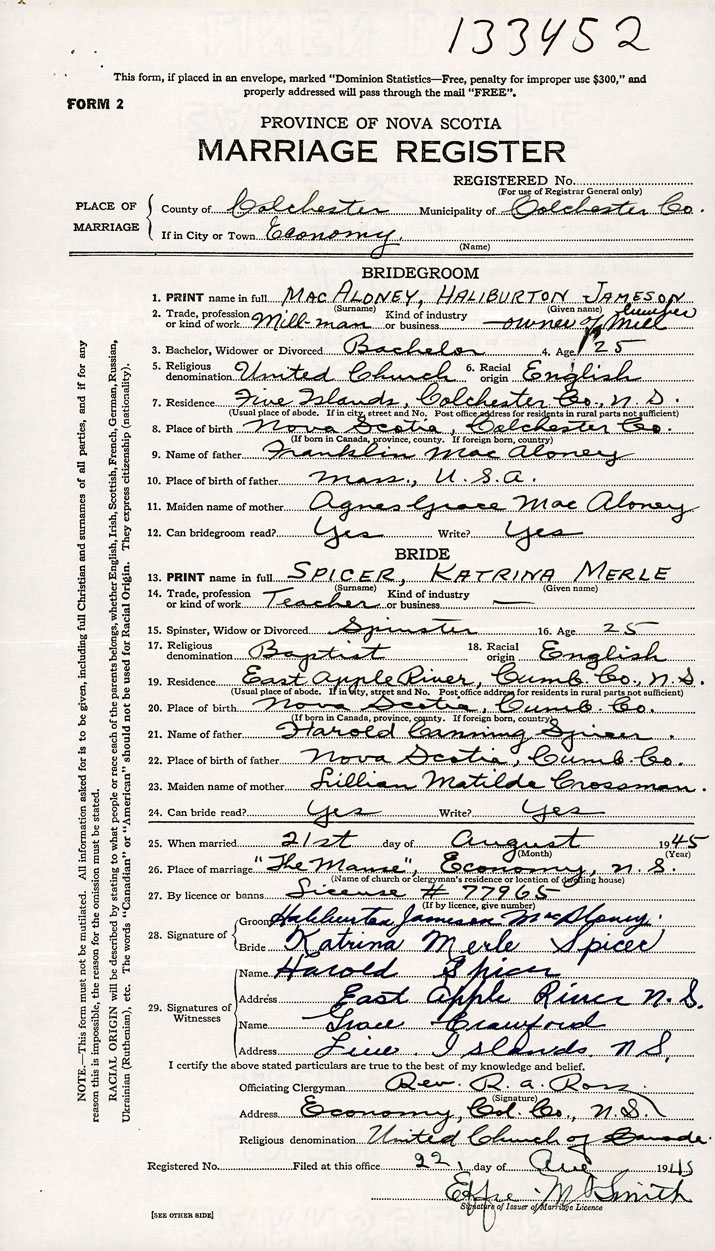 133452
This form, if placed in an envelope, marked “Dominion Statistics—Free, penalty for improper use $300,” and
properly addressed will pass through the mail “FREE”.
FORM 2
PROVINCE OF NOVA SCOTIA
MARRIAGE REGISTER
REGISTERED No.
(For use of Registrar General only)
PLACE OF MARRIAGE
County of Colchester Municipality of Colchester Co.
If in City or Town Economy.
(Name)
BRIDEGROOM
1. PRINT name in full MACALONEY, HALIBURTON JAMESON
(Surname) (Given name)
2. Trade, profession or kind of work Mill-man Kind of industry or business owner of lumber Mill
3. Bachelor, Widower or Divorced Bachelor 4. Age 25
5. Religious denomination United Church 6. Racial origin English
7. Residence Five Islands, Colchester Co., N.S.
(Usual place of abode. If in city, street and No. Post office address for residents in rural parts not sufficient)
8. Place of birth Nova Scotia, Colchester Co.
(If born in Canada, province, county. If foreign born, country)
9. Name of father Franklin MacAloney
10. Place of birth of father Mass., U.S.A.
11. Maiden name of mother Agnes Grace MacAloney
12. Can bridegroom read? Yes Write? Yes
BRIDE
13. PRINT name in full SPICER, KATRINA MERLE
(Surname) (Given name)
14. Trade, profession or kind of work Teacher Kind of industry or business —
15. Spinster, Widow or Divorced Spinster 16. Age 25
17. Religious denomination Baptist 18. Racial origin English
19. Residence East Apple River, Cumb. Co., N.S.
(Usual place of abode. If in city, street and No. Post office address for residents in rural parts not sufficient)
20. Place of birth Nova Scotia, Cumb. Co.
(If born in Canada, province, county. If foreign born, country)
21. Name of father Harold Canning Spicer.
22. Place of birth of father Nova Scotia, Cumb. Co.
23. Maiden name of mother Lillian Matilda Crossman.
24. Can bride read? Yes Write? Yes
25. When married 21st day of August 1945
(Month) (Year)
26. Place of marriage "The Manse", Economy, N.S.
(Name of church or clergyman's residence or location of dwelling house)
27. By licence or banns License # 77965
(If by licence, give number)
28. Signature of
Groom Haliburton Jameson MacAloney.
Bride Katrina Merle Spicer
29. Signatures of Witnesses
Name Harold Spicer
Address East Apple River N.S.
Name Grace Crawford
Address Five Islands. N.S.
I certify the above stated particulars are true to the best of my knowledge and belief.
Officiating Clergyman Rev. R. A. Ross.
(Signature)
Address Economy, Col. Co., N.S.
Religious denomination United Church of Canada.
Registered No. Filed at this office 22, day of Aug 1945
Effie M Smith
Signature of Issuer of Marriage Licence
[SEE OTHER SIDE]
NOTE.—This form must not be mutilated. All information asked for is to be given, including full Christian and surnames of all parties, and if for any
reason this is impossible, the reason for the omission must be stated.
RACIAL ORIGIN will be described by stating to what people or race each of the parents belongs, whether English, Irish, Scottish, French, German, Russian,
Ukrainian (Ruthenian), etc. The words “Canadian” or “American” should not be used for Racial Origin. They express citizenship (nationality).